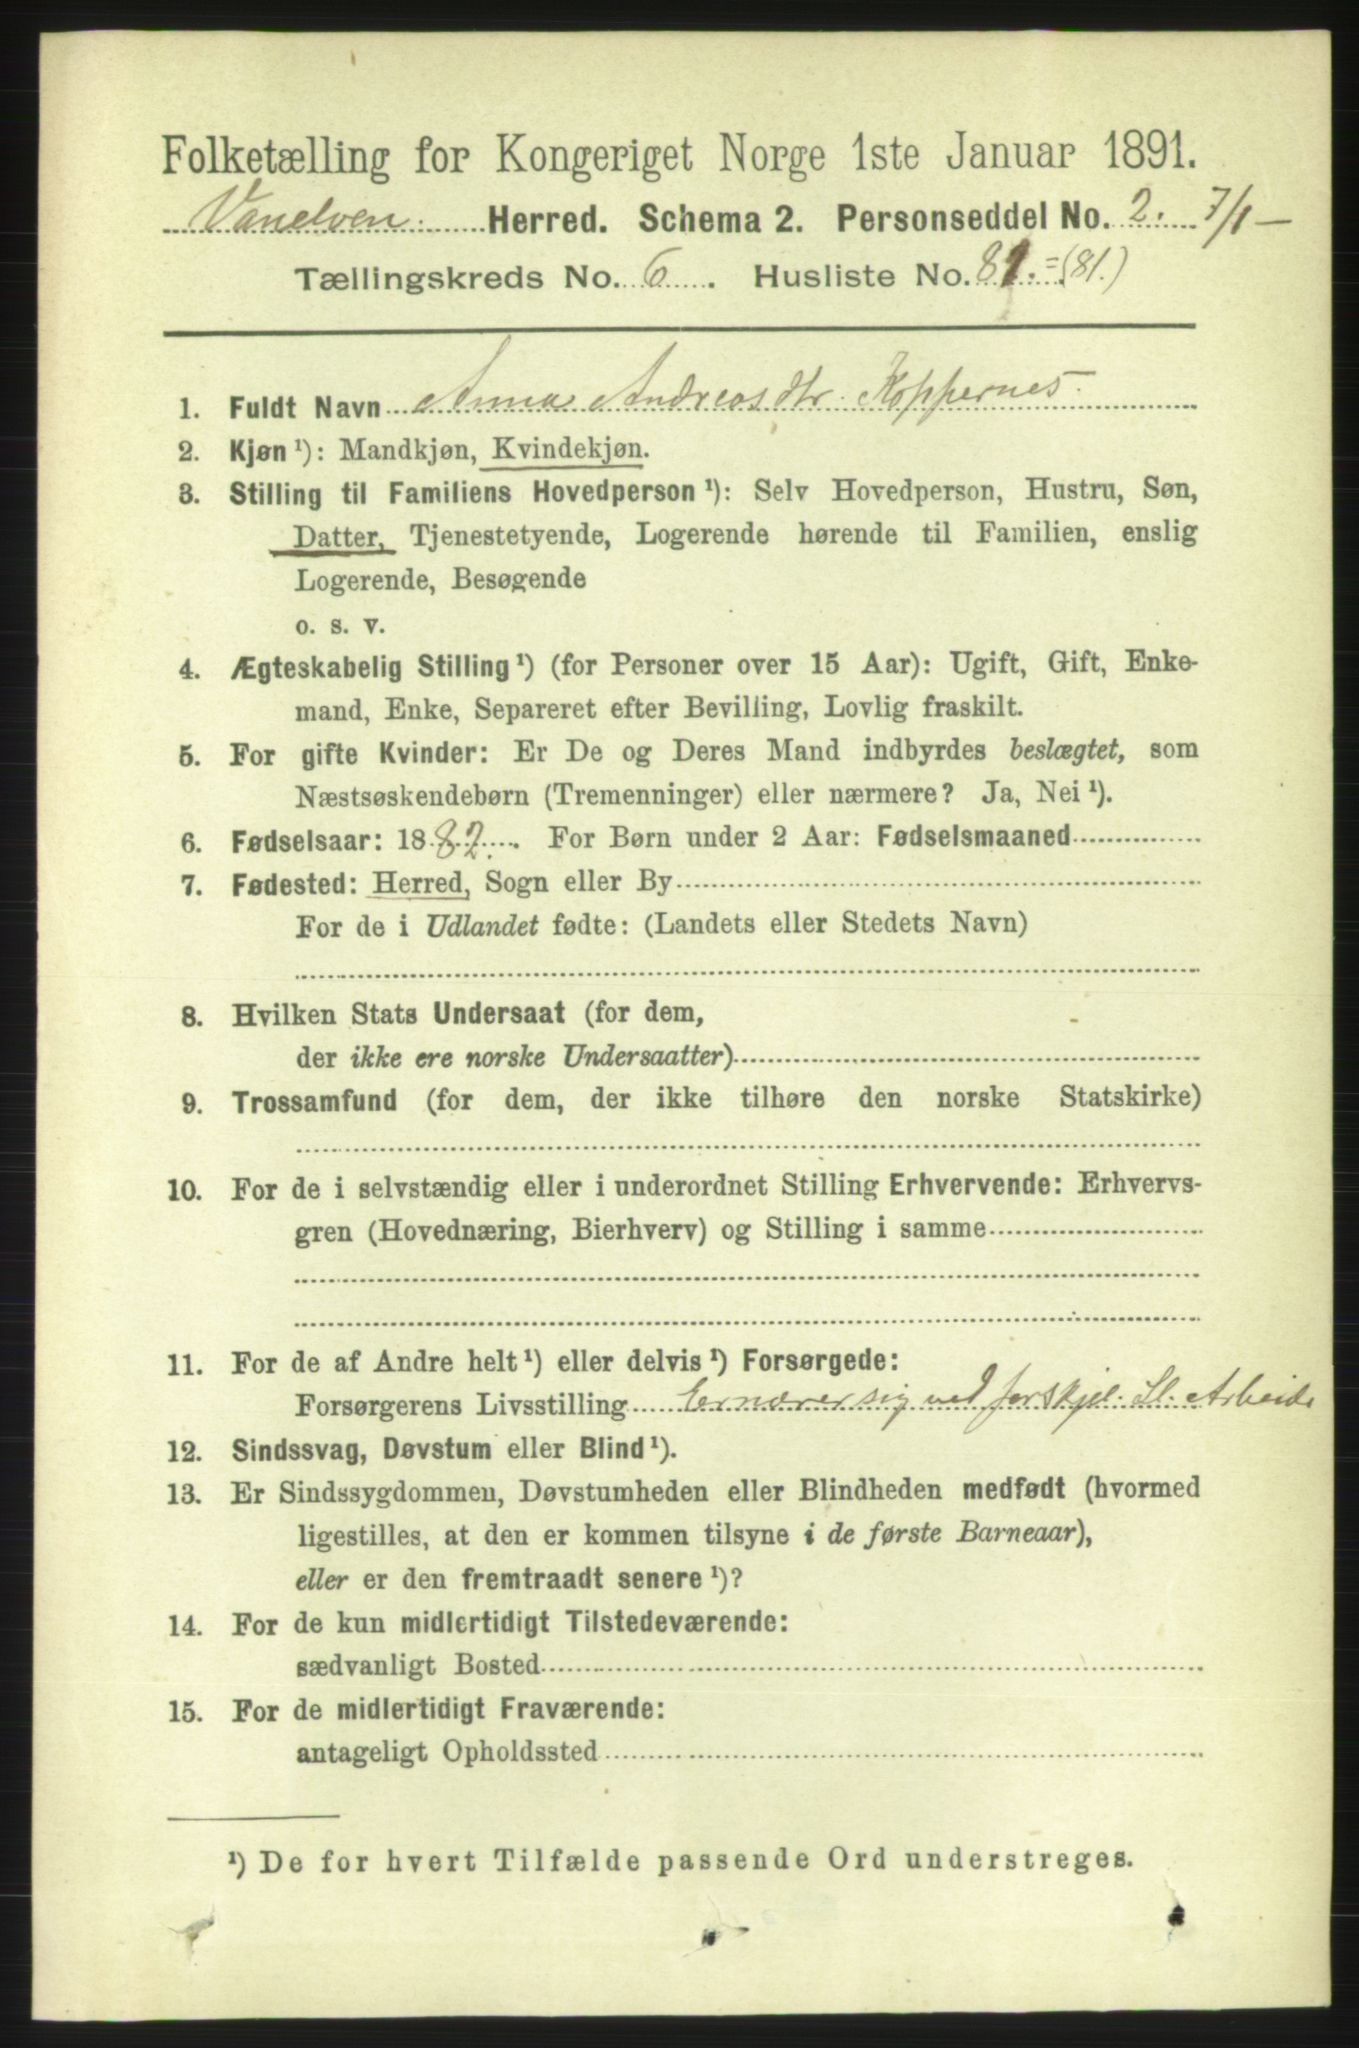 Folketælling for Kongeriget Norge 1ste Januar 1891.
Vanelven. Herred. Schema 2. Personseddel No. 2. 7/1 —
Tællingskreds No. 6. Husliste No. 81. = (81.)
1. Fuldt Navn Anna Andreasdtr. Koppernes.
2. Kjøn ¹): Mandkjøn, Kvindekjøn.
3. Stilling til Familiens Hovedperson ¹): Selv Hovedperson, Hustru, Søn,
Datter, Tjenestetyende, Logerende hørende til Familien, enslig
Logerende, Besøgende
o. s. v.
4. Ægteskabelig Stilling ¹) (for Personer over 15 Aar): Ugift, Gift, Enke-
mand, Enke, Separeret efter Bevilling, Lovlig fraskilt.
5. For gifte Kvinder: Er De og Deres Mand indbyrdes beslægtet, som
Næstsøskendebørn (Tremenninger) eller nærmere? Ja, Nei ¹).
6. Fødselsaar: 1882. For Børn under 2 Aar: Fødselsmaaned
7. Fødested: Herred, Sogn eller By
For de i Udlandet fødte: (Landets eller Stedets Navn)
8. Hvilken Stats Undersaat (for dem,
der ikke ere norske Undersaatter)
9. Trossamfund (for dem, der ikke tilhøre den norske Statskirke)
10. For de i selvstændig eller i underordnet Stilling Erhvervende: Erhvervs-
gren (Hovednæring, Bierhverv) og Stilling i samme
11. For de af Andre helt ¹) eller delvis ¹) Forsørgede:
Forsørgerens Livsstilling Ernærer sig ved forskjel. Sl. Arbeide
12. Sindssvag, Døvstum eller Blind ¹).
13. Er Sindssygdommen, Døvstumheden eller Blindheden medfødt (hvormed
ligestilles, at den er kommen tilsyne i de første Barneaar),
eller er den fremtraadt senere ¹)?
14. For de kun midlertidigt Tilstedeværende:
sædvanligt Bosted
15. For de midlertidigt Fraværende:
antageligt Opholdssted
¹) De for hvert Tilfælde passende Ord understreges.